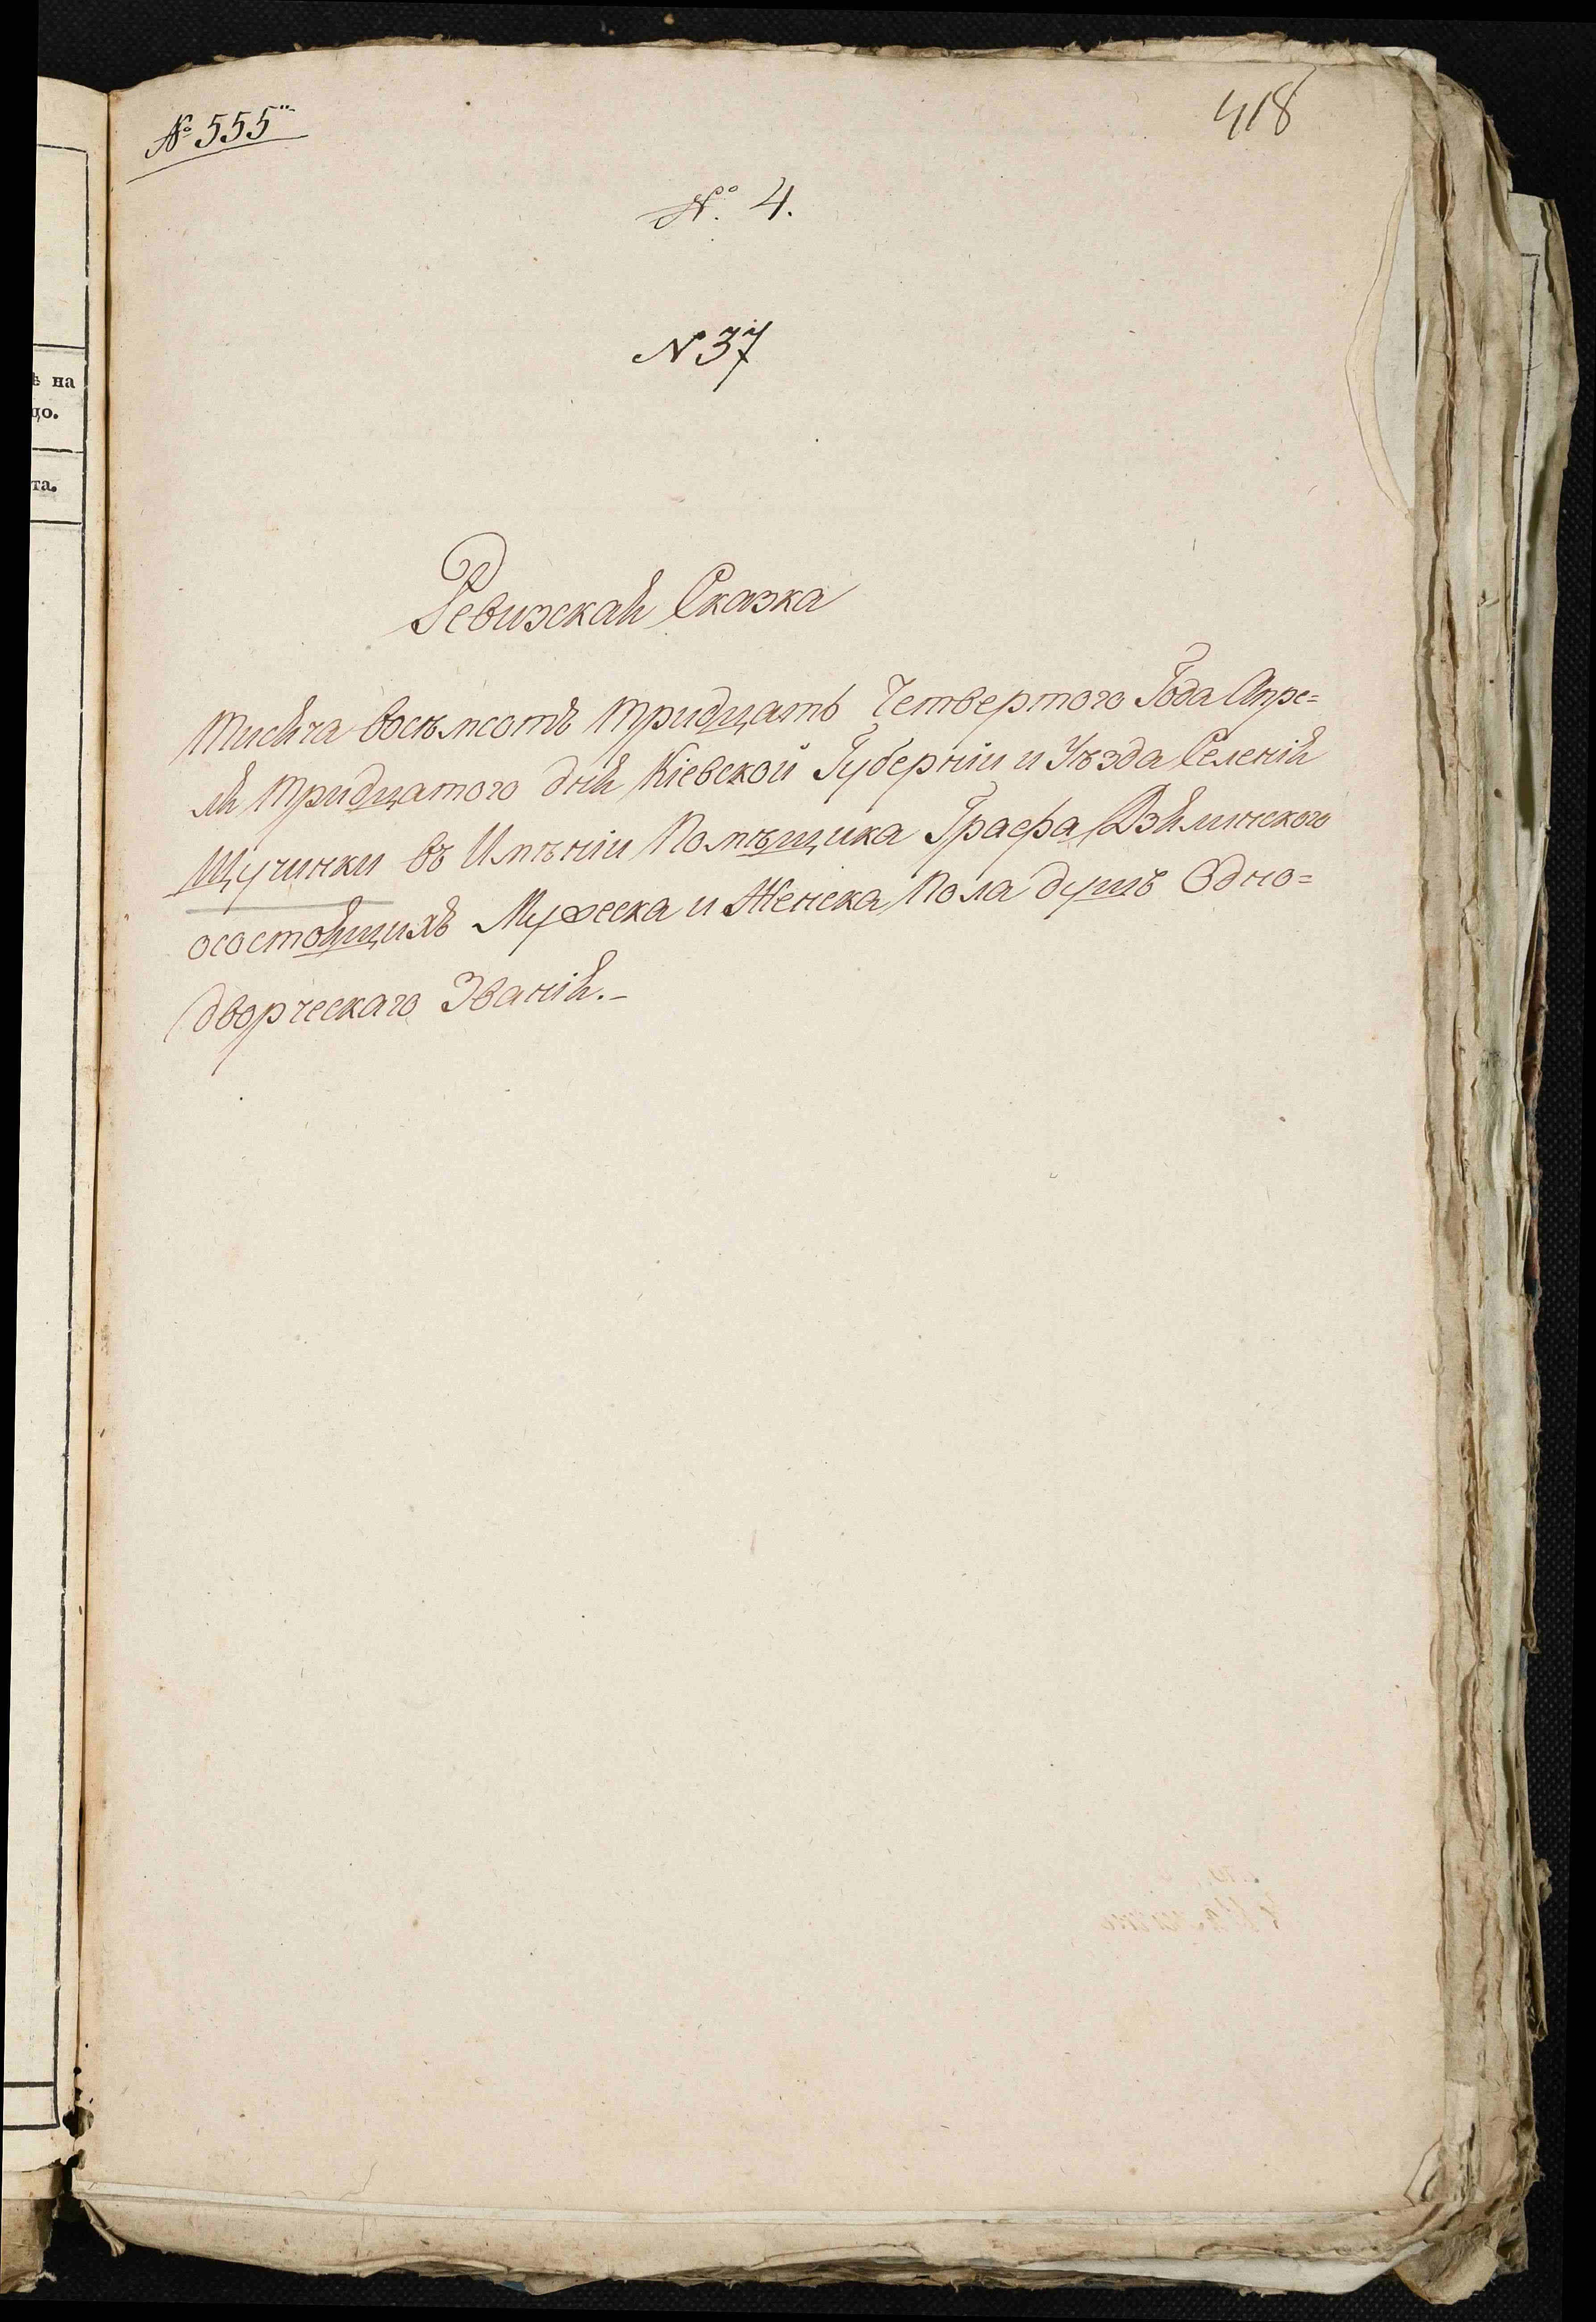 № 555
418
№. 4.
N 37
ѣ на
цо.
та.
Ревизская Сказка
Тисяча восѣмсотъ тридцать Четвертого Года Апре=
ля тридцатого дня Кіевской Губерніи и Уѣзда Селенія
Щучинки въ Имѣніи Помѣщика Графа Дзялинского
осостоящихъ Мужеска и Женска Пола душъ Одно=
дворческаго Званія.-